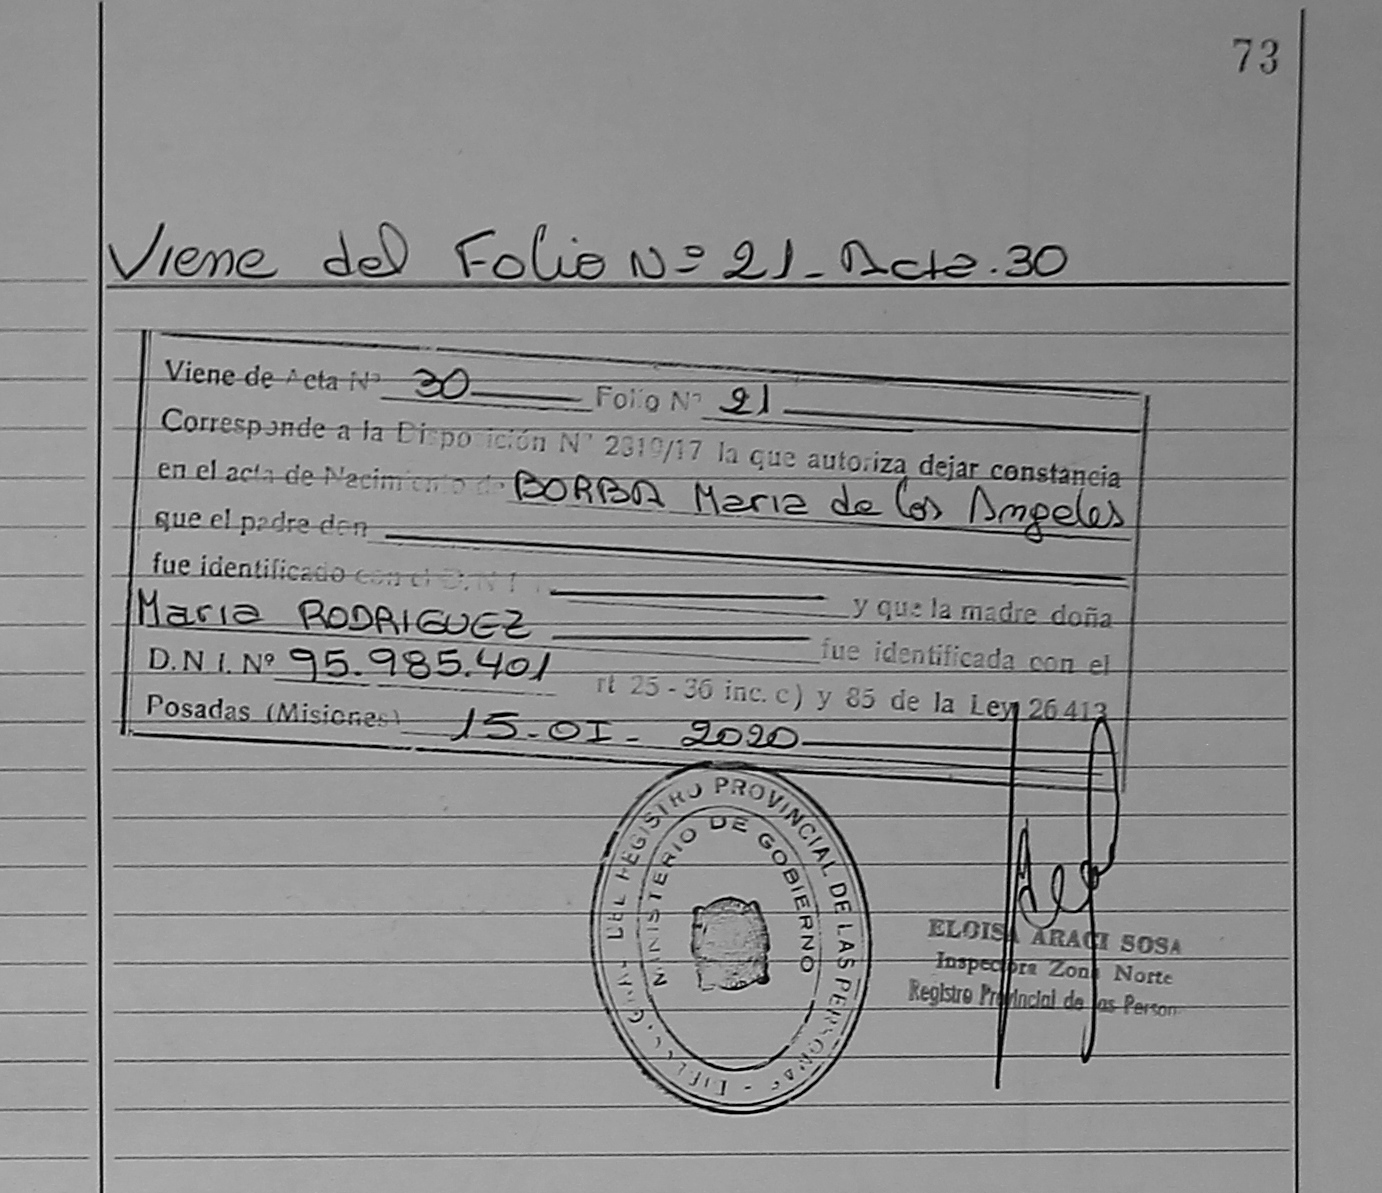 73
Viene del Folio Nº 21 - Acta. 30
Viene de Acta Nº 30 Folio Nº 21
Corresponde a la Disposición Nº 2319/17 la que autoriza dejar constancia
en el acta de Nacimiento de BORBA Maria de los Angeles
que el padre don
fue identificado con el D.N.I. y que la madre doña
Maria RODRIGUEZ fue identificada con el
D.N.I. Nº 95.985.401 rt 25 - 36 inc. c) y 85 de la Ley 26413
Posadas (Misiones) 15-OI-2020
DEL REGISTRO PROVINCIAL DE LAS PERSONAS
MINISTERIO DE GOBIERNO
ELOISA ARACI SOSA
Inspectora Zona Norte
Registro Provincial de las Person